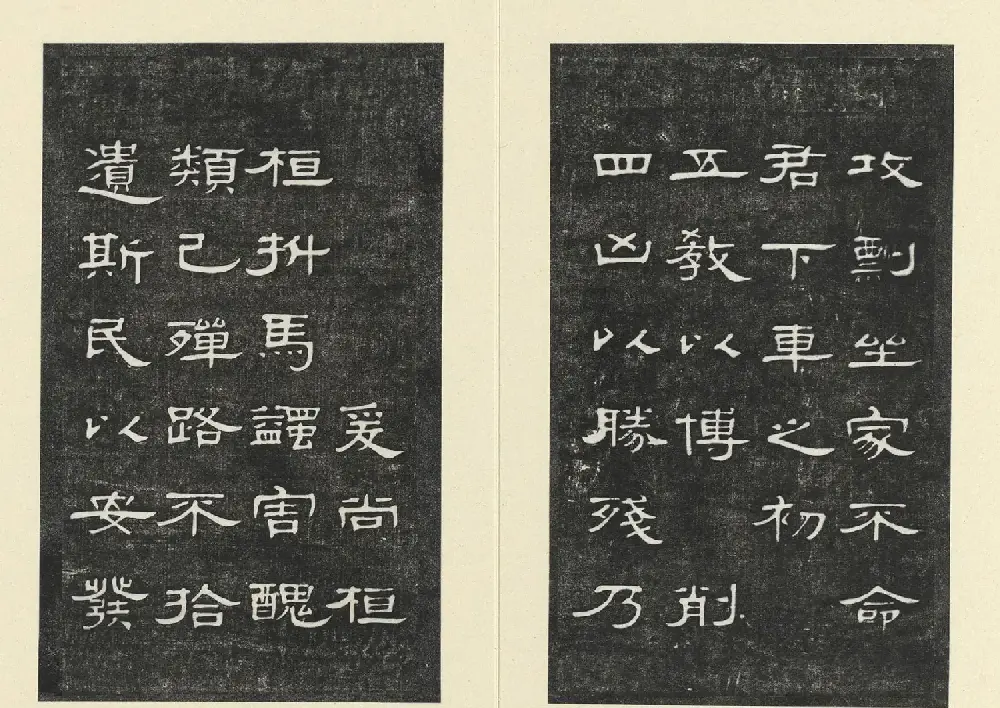 攻剽坐家不命
君下車之初
五教以博削
四凶以勝殘乃
爰尚桓
桓抍馬蠲害醜
類已殫路不拾
遺斯民以安發